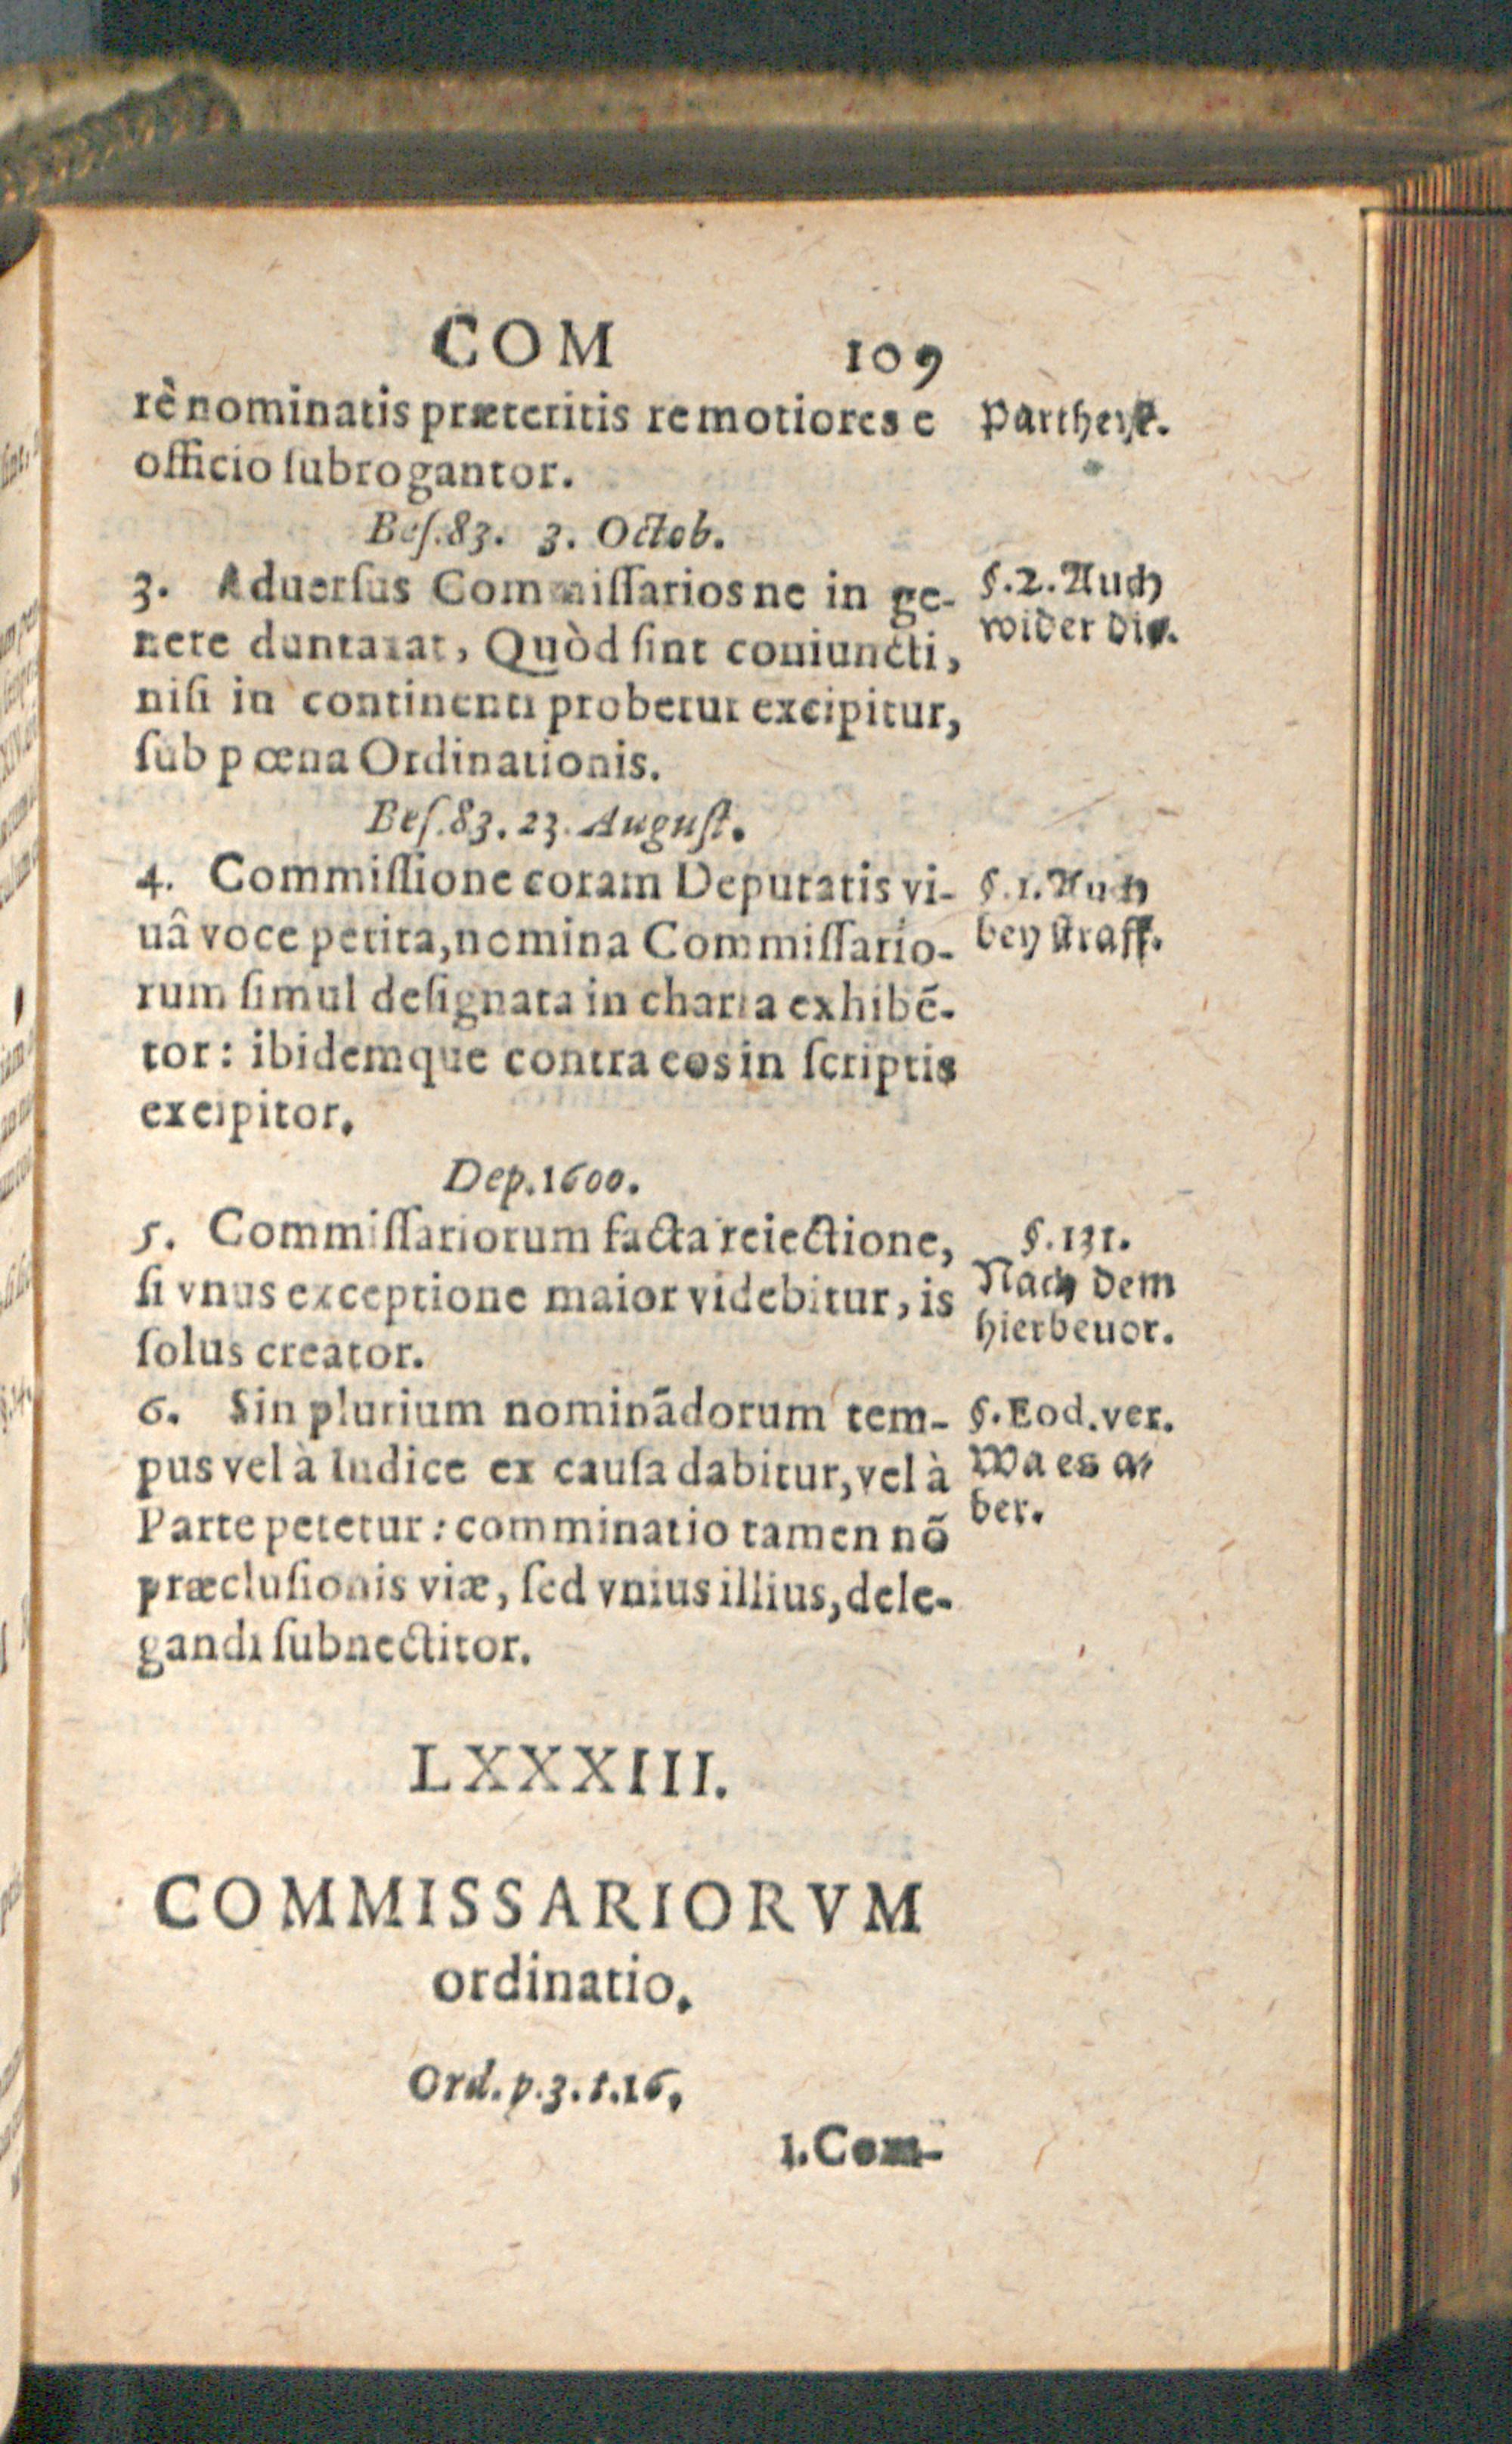 COM 109
rè nominatis præteritis remotiores e
officio ſubrogantor.
Partheyẽ.
Beſ.83. 3. Octob.
3. Aduerſus Commiſſarios ne in ge-
nere duntaxat, Quòd ſint coniuncti,
niſi in continenti probetur excipitur,
ſub pœna Ordinationis.
§.2. Auch
wider die.
Beſ.83. 23. Auguſt.
4. Commiſſione coram Deputatis vi-
uâ voce petita, nomina Commiſſario-
rum ſimul deſignata in charta exhibẽ-
tor: ibidemque contra eos in ſcriptis
excipitor.
§.1. Auch
bey ſtraff.
Dep.1600.
5. Commiſſariorum facta reiectione,
ſi vnus exceptione maior videbitur, is
ſolus creator.
§.131.
Nach dem
hierbeuor.
6. Sin plurium nominãdorum tem-
pus vel à Iudice ex cauſa dabitur, vel à
Parte petetur: comminatio tamen nõ
præcluſionis viæ, ſed vnius illius, dele-
gandi ſubnectitor.
§.Eod.ver.
Wa es a-
ber.
LXXXIII.
COMMISSARIORVM
ordinatio.
Ord.p.3.t.16.
1.Com-